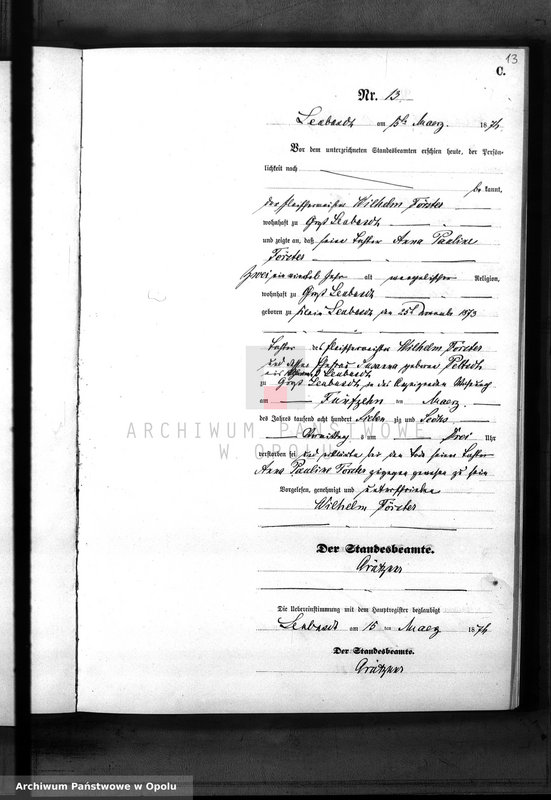 13
C.
Nr. 13
Leubusch am 15ten Maerz 1876
Vor dem unterzeichneten Standesbeamten erschien heute, der Persön-
lichkeit nach
be kannt,
der Fleischermeister Wilhelm Förster
wohnhaft zu Groß Leubusch
und zeigte an, daß seine Tochter Anna Pauline
Förster
zwei ein viertel Jahr alt evangelischer Religion,
wohnhaft zu Groß Leubusch
geboren zu Klein Leubusch den 25t 1873
Tochter des Fleischermeister Wilhelm Förster
und dessen Ehefrau Susanna geborene
Leubusch
zu Groß Leubusch in der
am Fünfzehn ten Maerz
des Jahres tausend acht hundert Sieben zig und Sechs
Vormittag s um Drei Uhr
verstorben sei und erklärte bei dem Tode seiner Tochter
Anna Pauline Förster zugegen gewesen zu sein
Vorgelesen, genehmigt und unterschrieben
Wilhelm Förster
Der Standesbeamte.
Grützner
Die Uebereinstimmung mit dem Hauptregister beglaubigt
Leubusch am 15 ten Maerz 1876
Der Standesbeamte.
Grützner
ARCHIWUM PAŃSTWOWE
W OPOLU
Archiwum Państwowe w Opolu